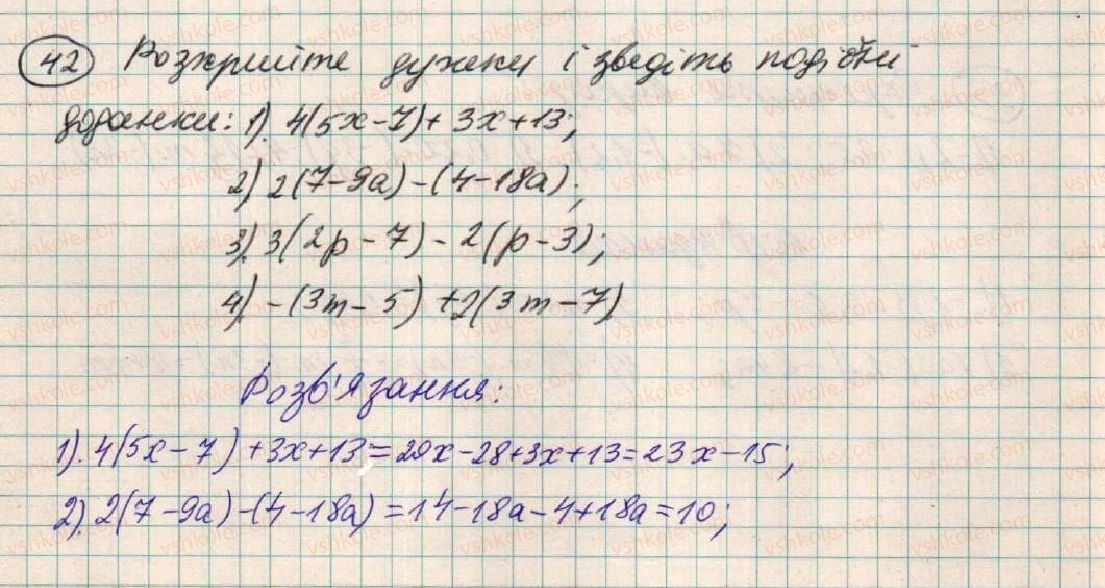 42 Розкрийте дужки і зведіть подібні
доданки: 1). 4(5x-7)+3x+13;
2) 2(7-9a)-(4-18a);
3). 3(2p-7)-2(p-3);
4) -(3m-5)+2(3m-7)
Розв'язання:
1). 4(5x-7)+3x+13=20x-28+3x+13=23x-15;
2). 2(7-9a)-(4-18a)=14-18a-4+18a=10;